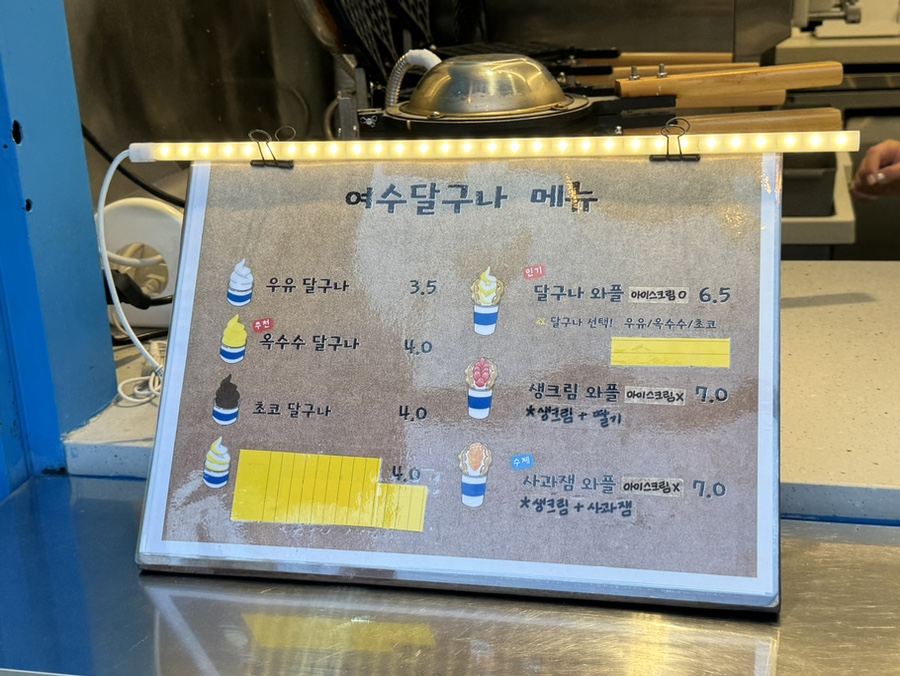 여수달구나 메뉴
우유 달구나 3.5
추천
옥수수 달구나 4.0
초코 달구나 4.0
4.0
인기
달구나 와플 아이스크림 O 6.5
달구나 선택! 우유/옥수수/초코
생크림 와플 아이스크림 X 7.0
*생크림 + 딸기
수제
사과잼 와플 아이스크림 X 7.0
*생크림 + 사과잼